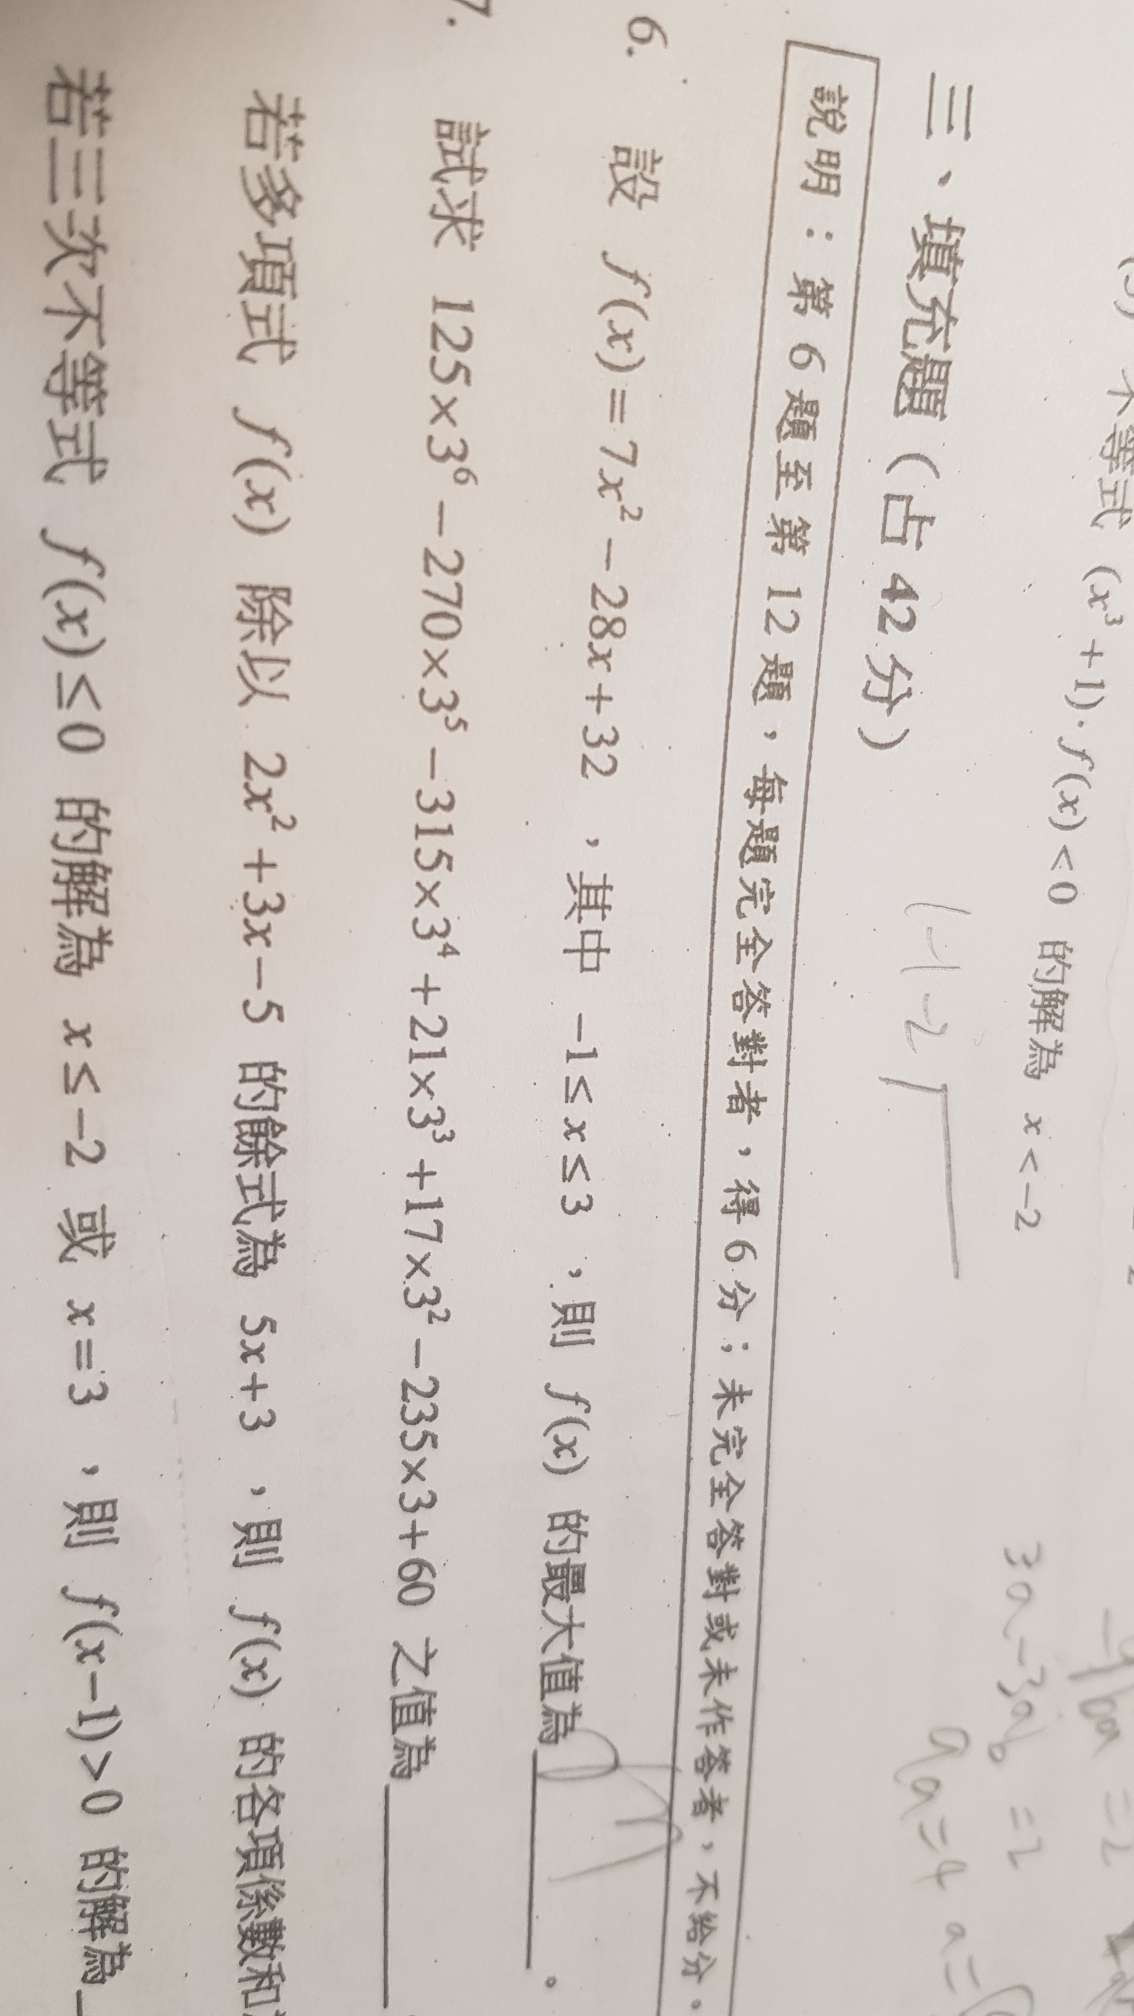 不等式 (x³+1)·f(x)<0 的解為 x<-2
3a-3ab=2
9a=4 a=
三、填充題(占 42 分)
說明:第 6 題至第 12 題,每題完全答對者,得 6 分;未完全答對或未作答者,不給分。
6. 設 f(x)=7x²-28x+32 ,其中 -1≤x≤3 ,則 f(x) 的最大值為______。
7. 試求 125×3⁶-270×3⁵-315×3⁴+21×3³+17×3²-235×3+60 之值為______
若多項式 f(x) 除以 2x²+3x-5 的餘式為 5x+3 ,則 f(x) 的各項係數和
若三次不等式 f(x)≤0 的解為 x≤-2 或 x=3 ,則 f(x-1)>0 的解為